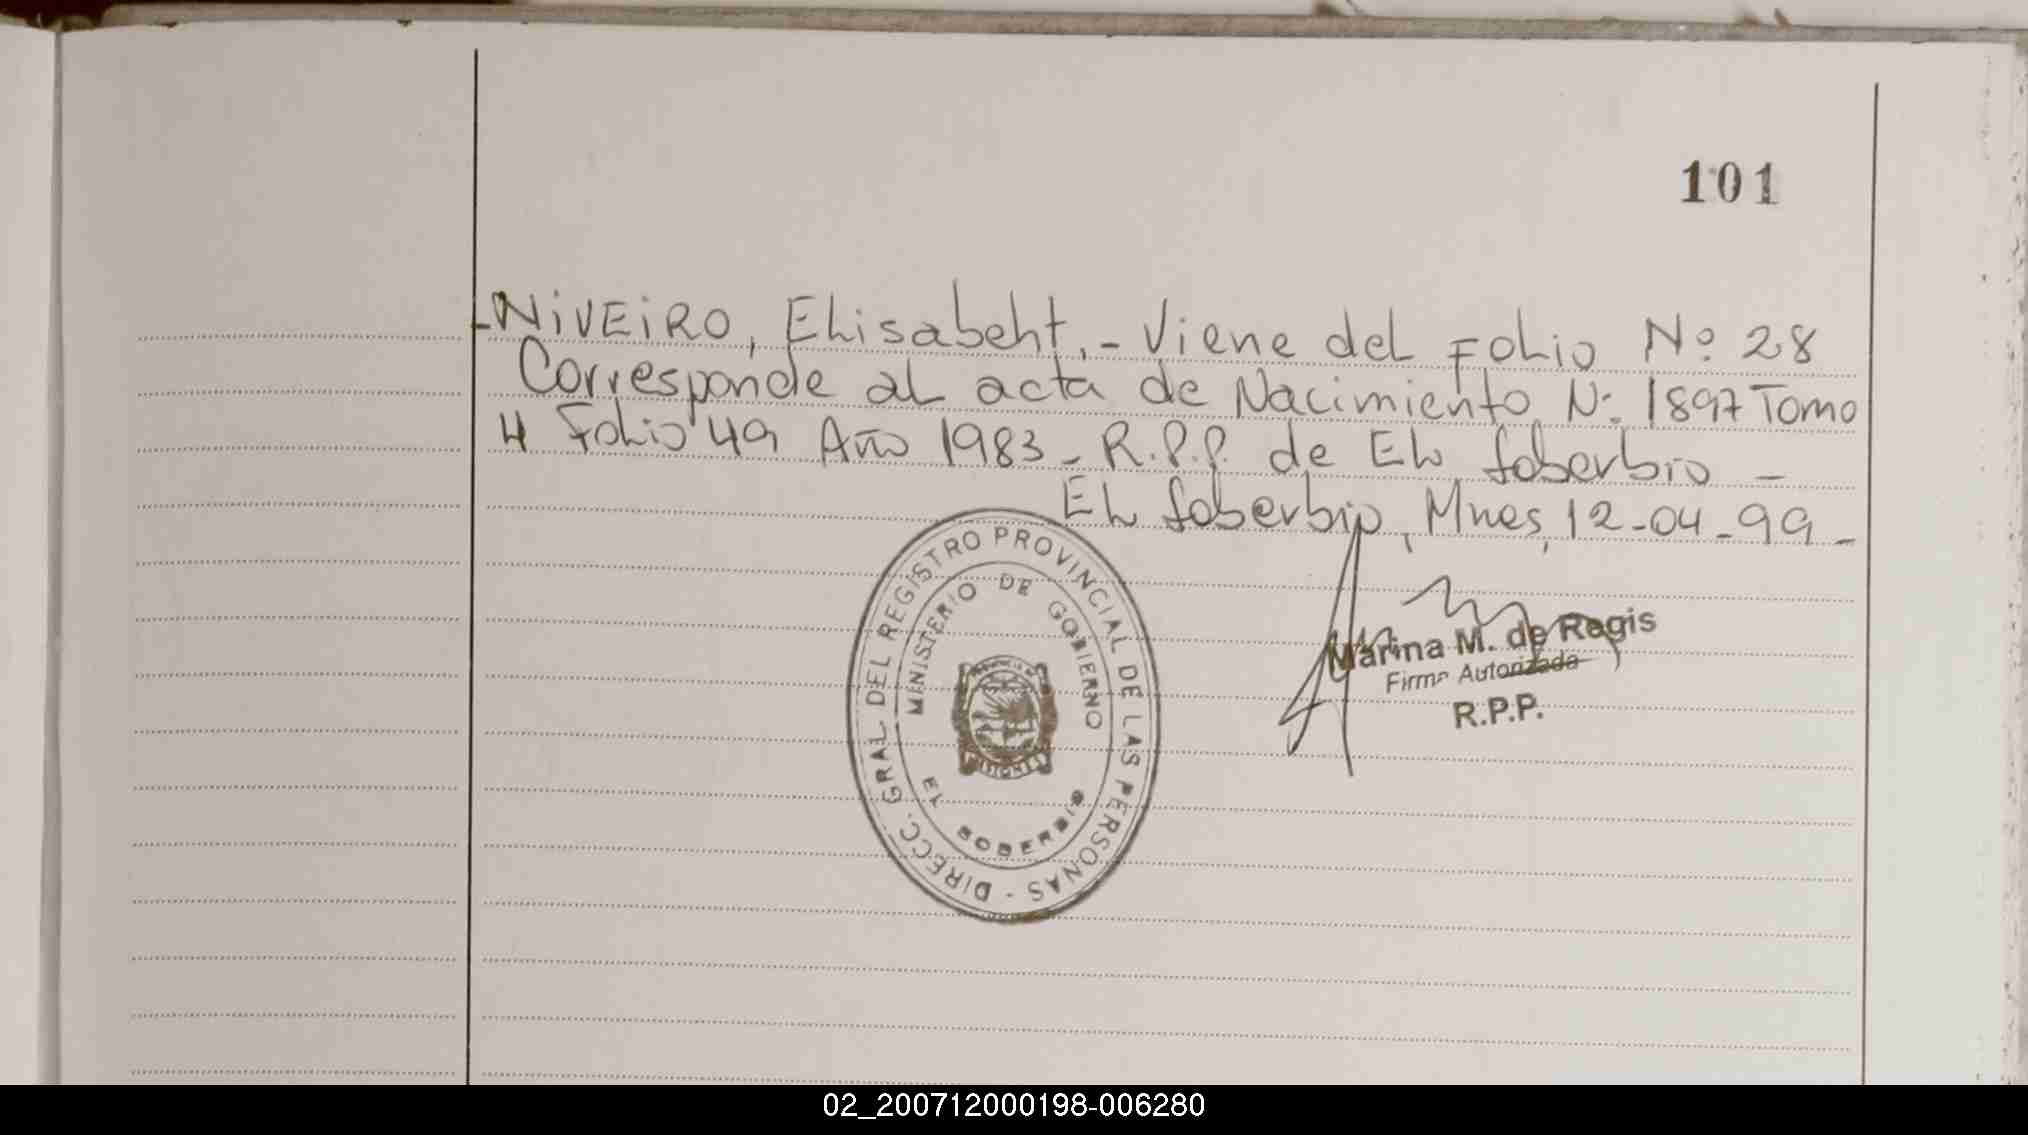 101
-NiVEiRO, Elisabeht.- Viene del Folio Nº 28
Corresponde al acta de Nacimiento Nº 1897 Tomo
4 Folio 49 Año 1983 - R.P.P. de El Soberbio -
El Soberbio, Mnes, 12-04-99-
DIRECC. GRAL. DEL REGISTRO PROVINCIAL DE LAS PERSONAS -
MINISTERIO DE GOBIERNO
MISIONES
EL SOBERBIO
Marina M. de Regis
Firma Autorizada
R.P.P.
02_200712000198-006280